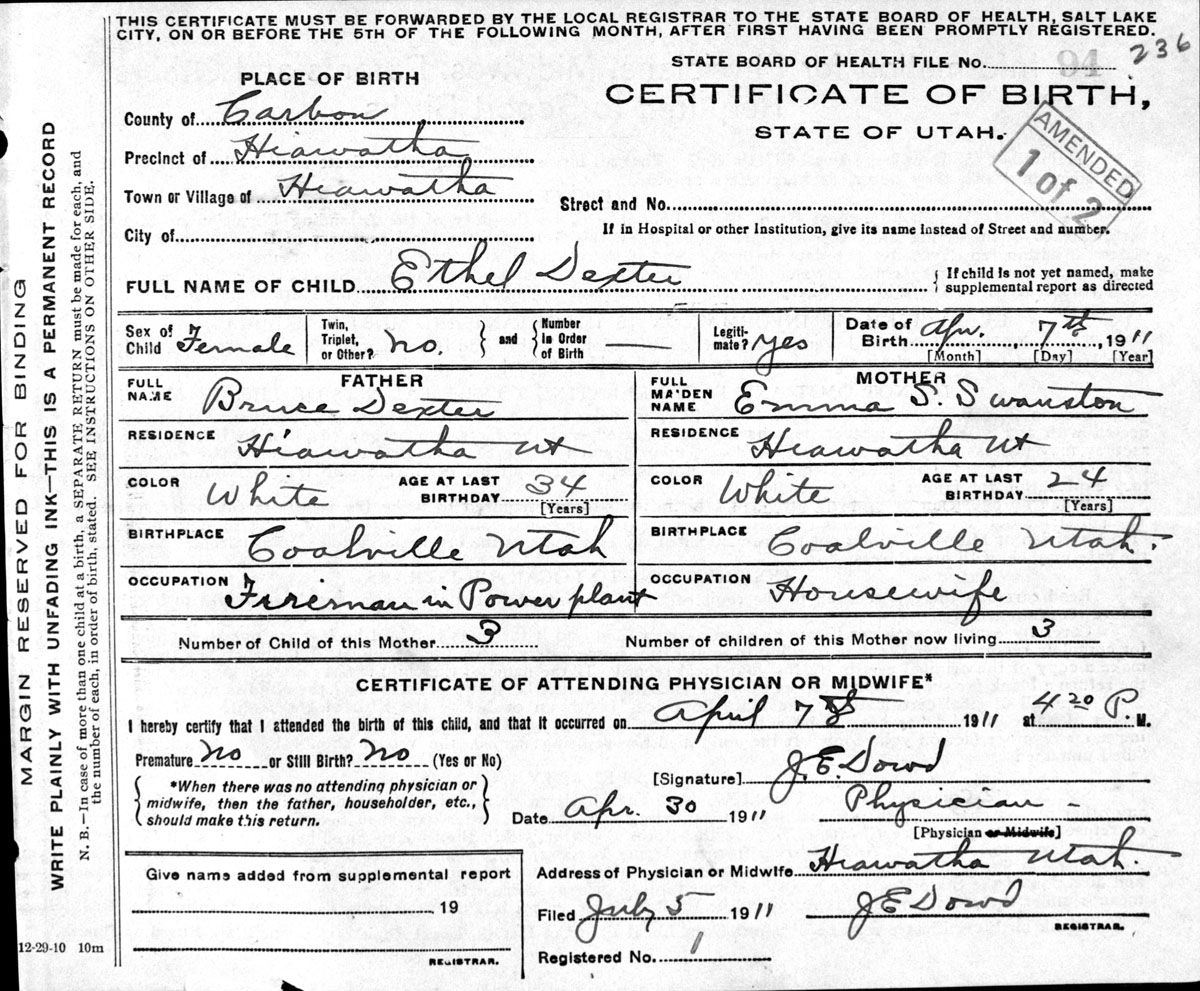 THIS CERTIFICATE MUST BE FORWARDED BY THE LOCAL REGISTRAR TO THE STATE BOARD OF HEALTH, SALT LAKE
CITY, ON OR BEFORE THE 5TH OF THE FOLLOWING MONTH, AFTER FIRST HAVING BEEN PROMPTLY REGISTERED.
STATE BOARD OF HEALTH FILE No. 94 236
PLACE OF BIRTH
CERTIFICATE OF BIRTH,
STATE OF UTAH.
AMENDED
1 of 2
County of Carbon
Precinct of Hiawatha
Town or Village of Hiawatha
Street and No.
City of
If in Hospital or other Institution, give its name instead of Street and number.
FULL NAME OF CHILD Ethel Dexter
{ If child is not yet named, make
supplemental report as directed
Sex of Child Female
Twin, Triplet, or Other? No. } and { Number in Order of Birth —
Legitimate? yes
Date of Birth Apr. 7th, 1911
[Month] [Day] [Year]
FATHER
FULL NAME Bruce Dexter
RESIDENCE Hiawatha Ut
COLOR White AGE AT LAST BIRTHDAY 34
[Years]
BIRTHPLACE Coalville Utah
OCCUPATION Fireman in Power plant
MOTHER
FULL MAIDEN NAME Emma S. Swanston
RESIDENCE Heawatha Ut
COLOR White AGE AT LAST BIRTHDAY 24
[Years]
BIRTHPLACE Coalville Utah.
OCCUPATION Housewife
Number of Child of this Mother 3
Number of children of this Mother now living 3
CERTIFICATE OF ATTENDING PHYSICIAN OR MIDWIFE*
I hereby certify that I attended the birth of this child, and that it occurred on April 7th 1911 at 4 20 P. M.
Premature No or Still Birth? No (Yes or No)
*When there was no attending physician or
midwife, then the father, householder, etc.,
should make this return.
[Signature] J. E. Dowd
Date Apr. 30 1911
Physician -
[Physician or Midwife]
Address of Physician or Midwife Heawatha Utah.
Give name added from supplemental report
19
REGISTRAR.
Filed July 5 1911
J E Dowd
REGISTRAR.
Registered No. 1
12-29-10 10m
MARGIN RESERVED FOR BINDING
WRITE PLAINLY WITH UNFADING INK—THIS IS A PERMANENT RECORD
N. B.—In case of more than one child at a birth, a SEPARATE RETURN must be made for each, and
the number of each, in order of birth, stated. SEE INSTRUCTIONS ON OTHER SIDE.